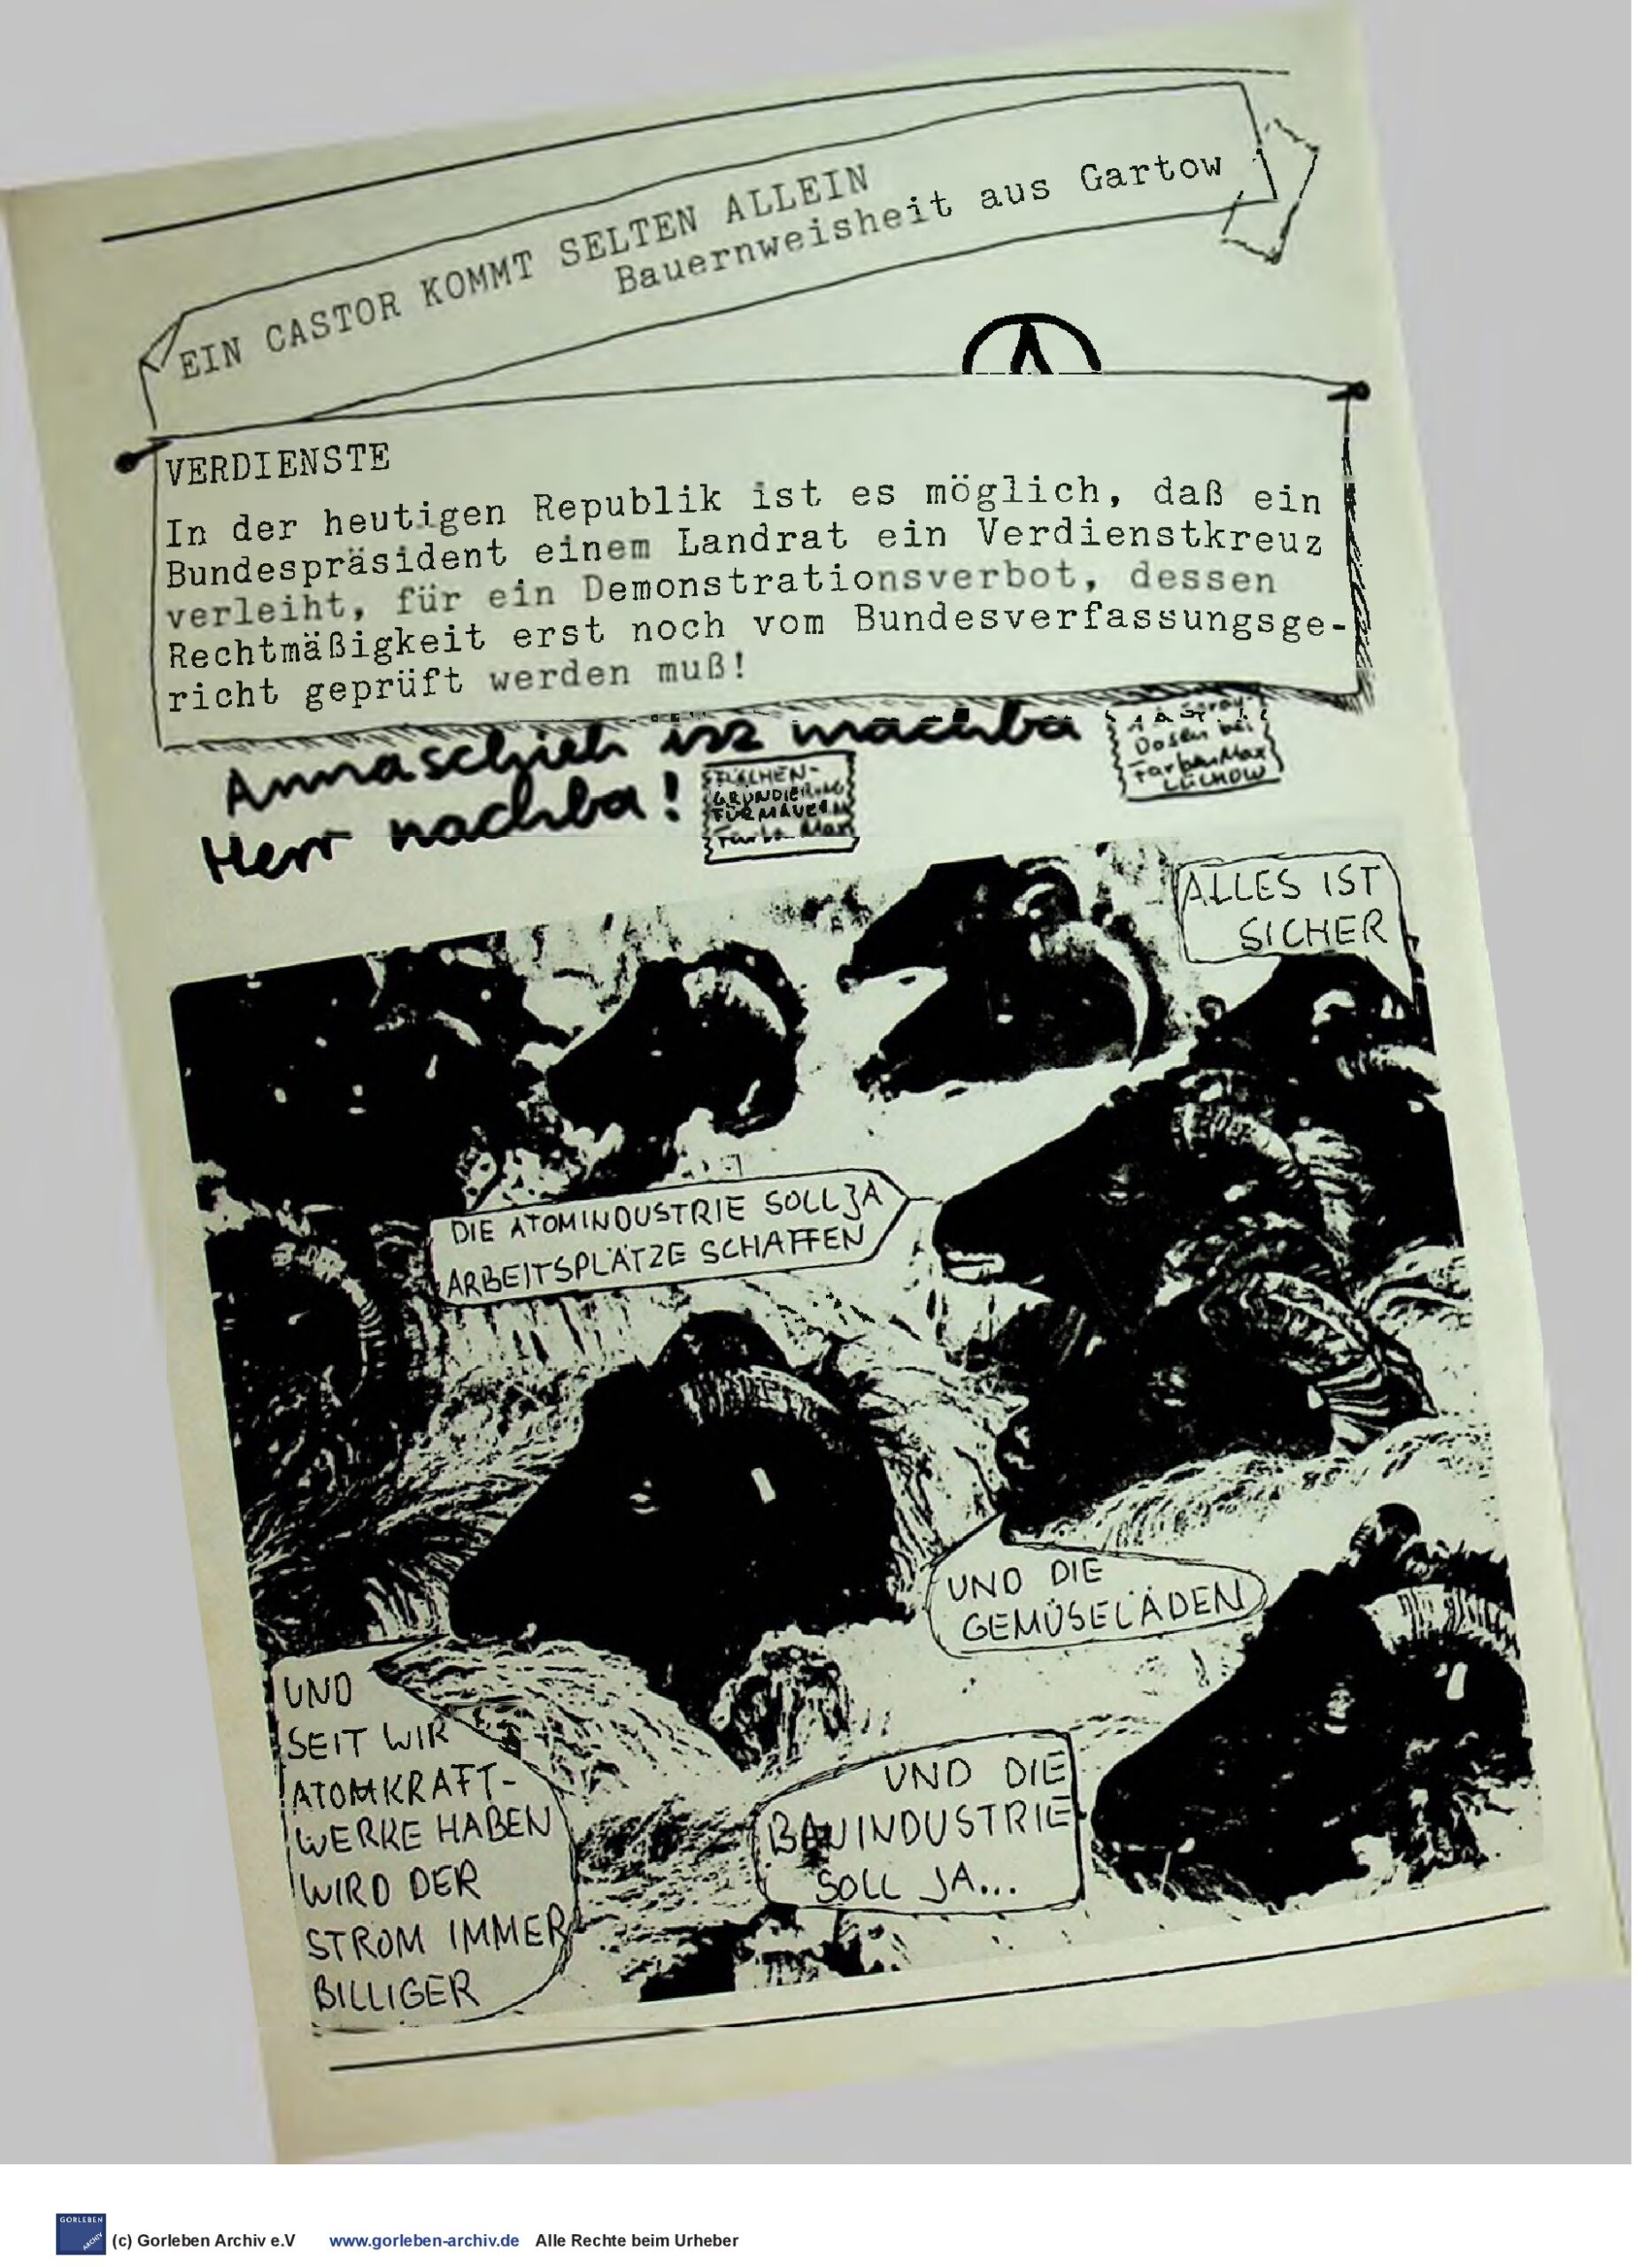 EIN CASTOR KOMMT SELTEN ALLEIN
Bauernweisheit aus Gartow
VERDIENSTE
In der heutigen Republik ist es möglich, daß ein
Bundespräsident einem Landrat ein Verdienstkreuz
verleiht, für ein Demonstrationsverbot, dessen
Rechtmäßigkeit erst noch vom Bundesverfassungsge-
richt geprüft werden muß!
Annaschieh isz machba
Herr nachba!
FLÄCHEN-
GRUNDIERUNG
FÜR MAUERN
Farben Max
Dosen bei
Farben Max
LÜCHOW
ALLES IST
SICHER
DIE ATOMINDUSTRIE SOLL JA
ARBEITSPLÄTZE SCHAFFEN
UND DIE
GEMÜSELÄDEN
UND
SEIT WIR
ATOMKRAFT-
WERKE HABEN
WIRD DER
STROM IMMER
BILLIGER
UND DIE
BAUINDUSTRIE
SOLL JA...
GORLEBEN
ARCHIV
(c) Gorleben Archiv e.V www.gorleben-archiv.de Alle Rechte beim Urheber